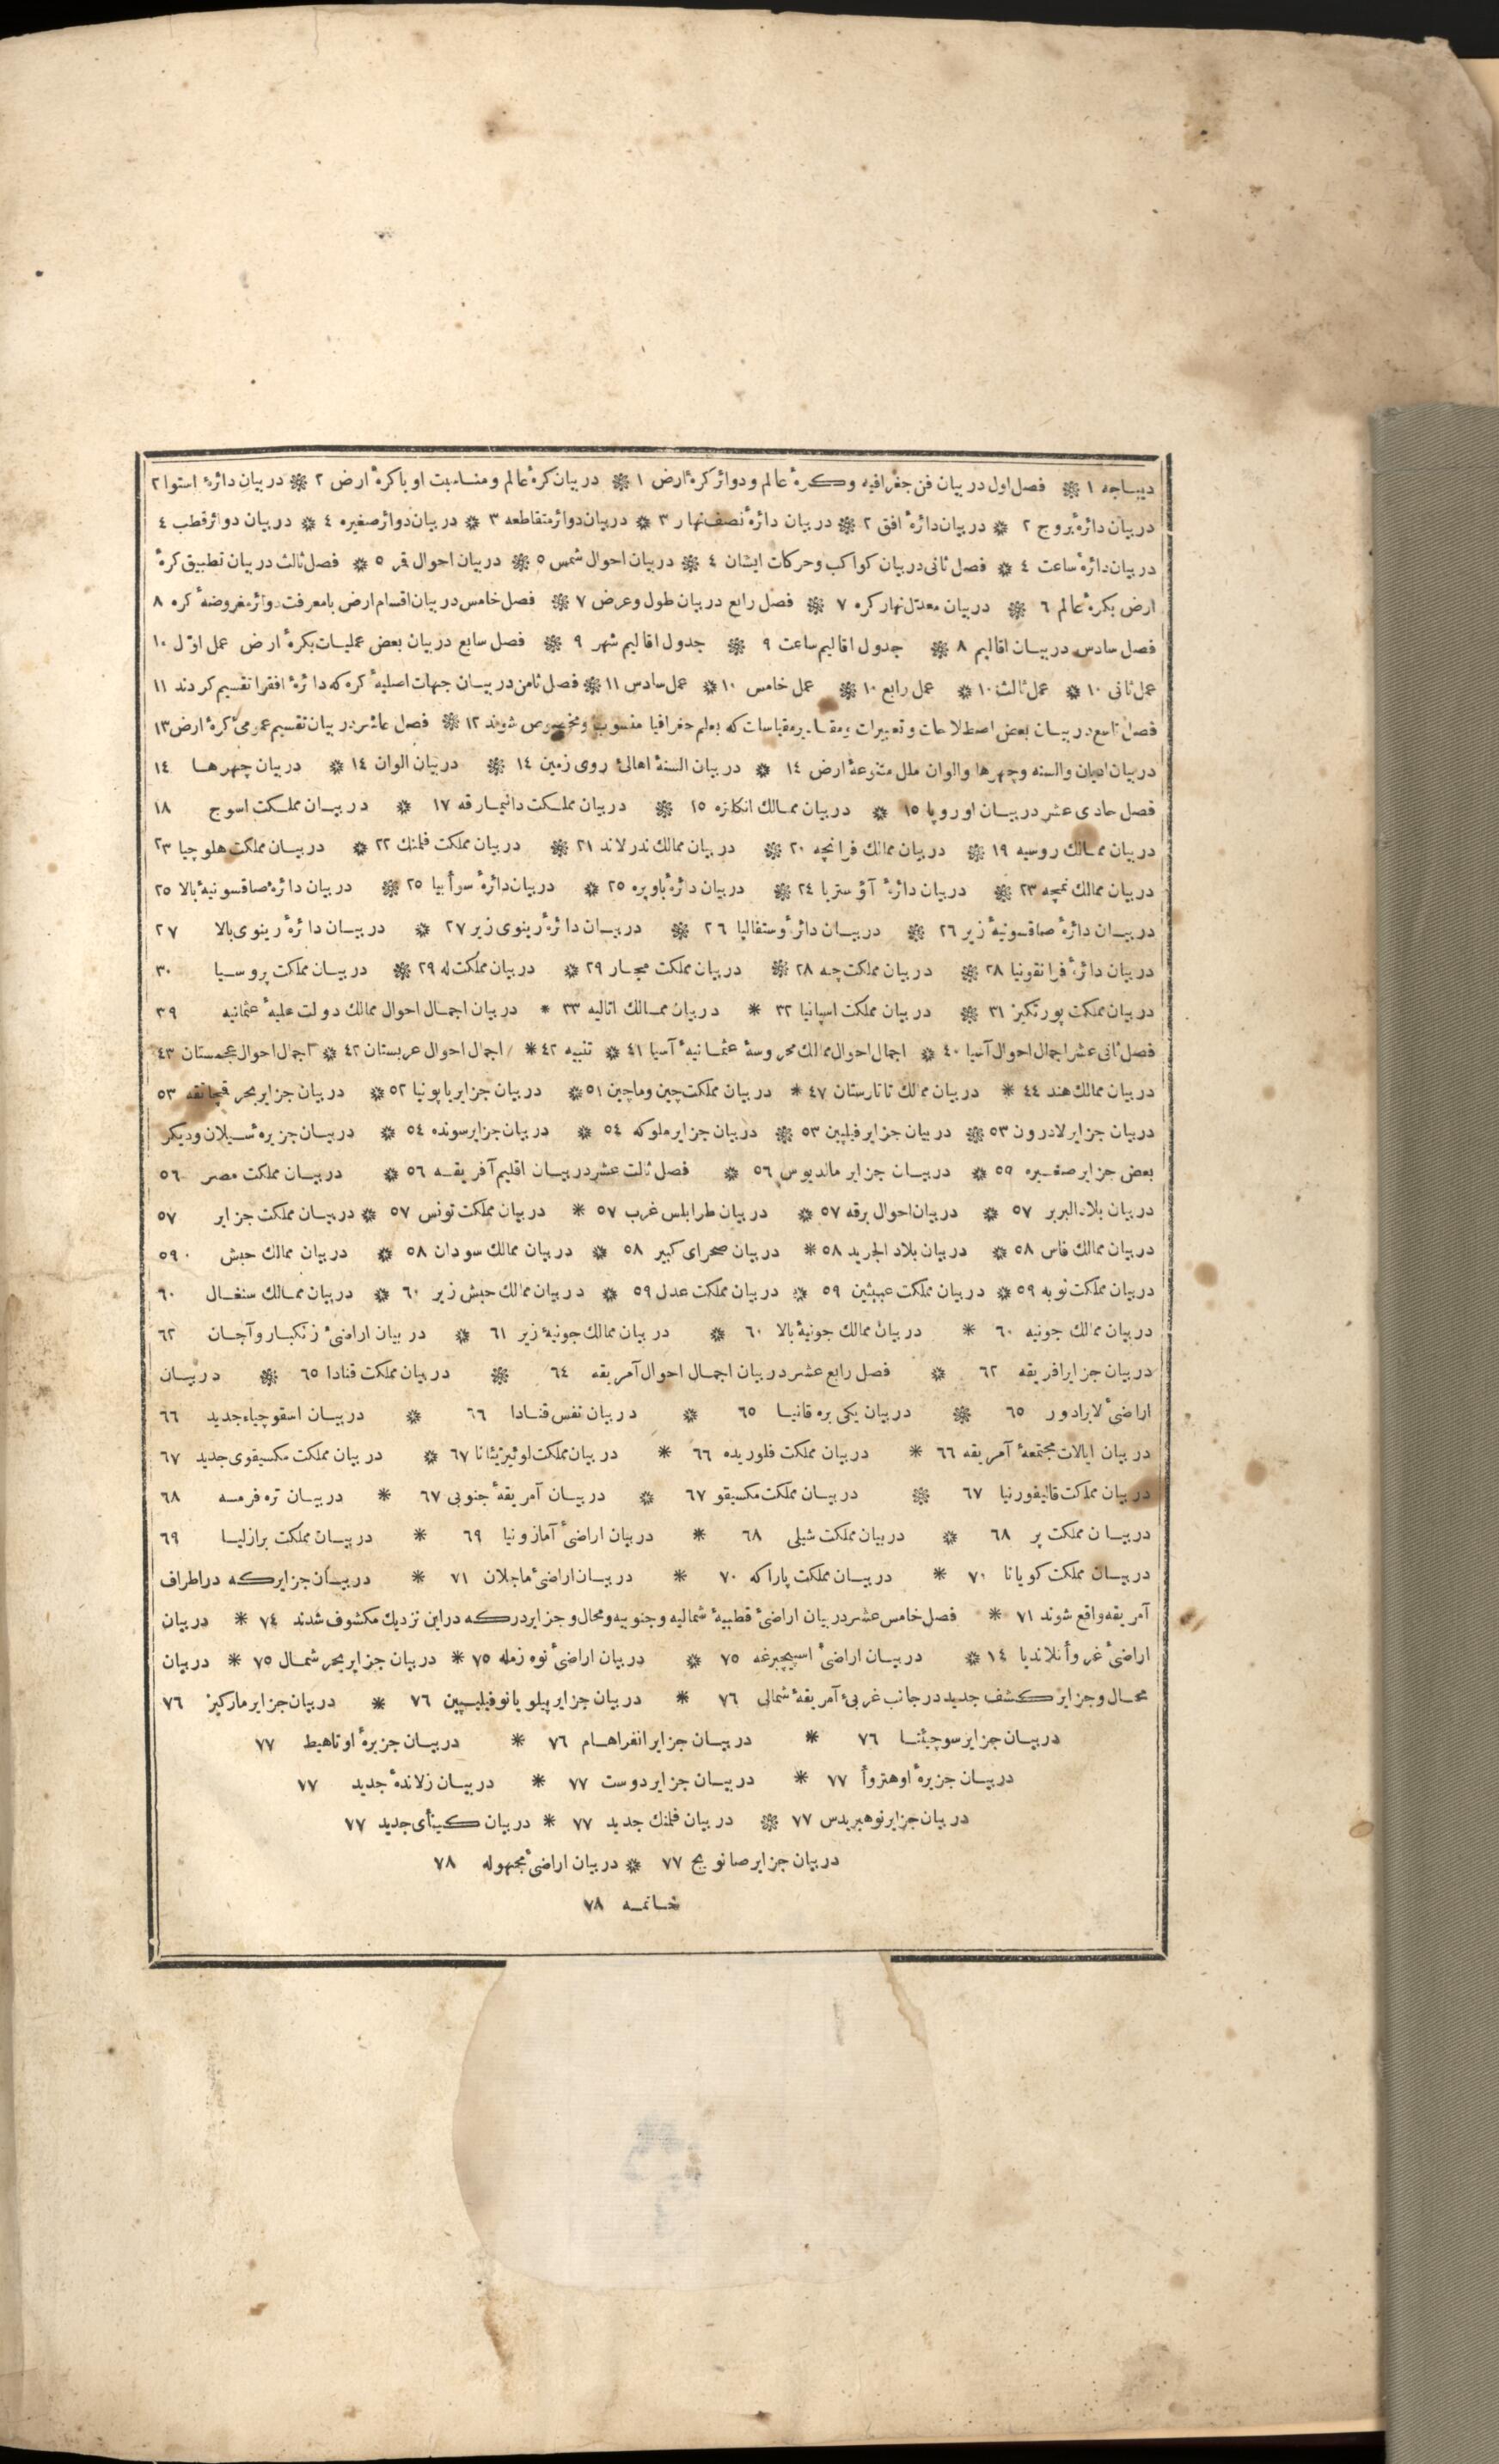 دیباجه ١ ❊ فصل اول در بیان فن جغرافیه وکرهٔ عالم ودوائر کرهٔ ارض ١ ❊ در بیان کرهٔ عالم ومناسبت او باکرهٔ ارض ٢ ❊ در بیان دائرهٔ استوا ٢
در بیان دائرهٔ بروج ٢ ❊ در بیان دائرهٔ افق ٢ ❊ در بیان دائرهٔ نصف نهار ٣ ❊ در بیان دوائر متقاطعه ٣ ❊ در بیان دوائر صغیره ٤ ❊ در بیان دوائر قطب ٤
در بیان دائرهٔ ساعت ٤ ❊ فصل ثانی در بیان کواکب وحرکات ایشان ٤ ❊ در بیان احوال شمس ٥ ❊ در بیان احوال قمر ٥ ❊ فصل ثالث در بیان تطبیق کرهٔ
ارض بکرهٔ عالم ٦ ❊ در بیان معدل نهار کره ٧ ❊ فصل رابع در بیان طول وعرض ٧ ❊ فصل خامس در بیان اقسام ارض بامعرفت دوائر مفروضهٔ کره ٨
فصل سادس در بیان اقالیم ٨ ❊ جدول اقالیم ساعت ٩ ❊ جدول اقالیم شهر ٩ ❊ فصل سابع در بیان بعض عملیات بکرهٔ ارض عمل اوّل ١٠
عمل ثانی ١٠ ❊ عمل ثالث ١٠ ❊ عمل رابع ١٠ ❊ عمل خامس ١٠ ❊ عمل سادس ١١ ❊ فصل ثامن در بیان جهات اصلیهٔ کره که دائرهٔ افقرا تقسیم کردند ١١
فصل تاسع در بیان بعض اصطلاحات وتعبیرات ومقادیر ومقیاسات که بعلم جغرافیا منسوب ومخصوص شوند ١٢ ❊ فصل عاشر در بیان تقسیم عمومئ کرهٔ ارض ١٣
در بیان ادیان والسنه وچهرها والوان ملل متنوعهٔ ارض ١٤ ❊ در بیان السنهٔ اهالئ روی زمین ١٤ ❊ در بیان الوان ١٤ ❊ در بیان چهرها ١٤
فصل حادی عشر در بیان اوروپا ١٥ ❊ در بیان ممالك انکلتره ١٥ ❊ در بیان مملکت دانیمارقه ١٧ ❊ در بیان مملکت اسوج ١٨
در بیان ممالك روسیه ١٩ ❊ در بیان ممالك فرانچه ٢٠ ❊ در بیان ممالك ندرلاند ٢١ ❊ در بیان مملکت فلمنك ٢٢ ❊ در بیان مملکت هلوچیا ٢٣
در بیان ممالك نمچه ٢٣ ❊ در بیان دائرهٔ آوٴستریا ٢٤ ❊ در بیان دائرهٔ باویره ٢٥ ❊ در بیان دائرهٔ سوأبیا ٢٥ ❊ در بیان دائرهٔ صاقسونیهٔ بالا ٢٥
در بیان دائرهٔ صاقسونیهٔ زیر ٢٦ ❊ در بیان دائرهٔ وستفالیا ٢٦ ❊ در بیان دائرهٔ رینوی زیر ٢٧ ❊ در بیان دائرهٔ رینوی بالا ٢٧
در بیان دائرهٔ فرانقونیا ٢٨ ❊ در بیان مملکت چه ٢٨ ❊ در بیان مملکت مجار ٢٩ ❊ در بیان مملکت له ٢٩ ❊ در بیان مملکت پروسیا ٣٠
در بیان مملکت پورتکیز ٣١ ❊ در بیان مملکت اسپانیا ٣٢ * در بیان ممالك اتالیه ٣٣ * در بیان اجمال احوال ممالك دولت علیهٔ عثمانیه ٣٩
فصل ثانی عشر اجمال احوال آسیا ٤٠ ❊ اجمال احوال ممالك محروسهٔ عثمانیهٔ آسیا ٤١ ❊ تنبیه ٤٢ * اجمال احوال عربستان ٤٢ ❊ اجمال احوال عجمستان ٤٣
در بیان ممالك هند ٤٤ * در بیان ممالك تاتارستان ٤٧ * در بیان مملکت چین وماچین ٥١ ❊ در بیان جزایر یاپونیا ٥٢ ❊ در بیان جزایر بحر قمچاتقه ٥٣
در بیان جزایر لادرون ٥٣ ❊ در بیان جزایر فیلیپین ٥٣ ❊ در بیان جزایر ملوکه ٥٤ ❊ در بیان جزایر سونده ٥٤ ❊ در بیان جزیرهٔ سیلان ودیکر
بعض جزایر صغیره ٥٩ ❊ در بیان جزایر مالدیوس ٥٦ ❊ فصل ثالث عشر در بیان اقلیم آفریقه ٥٦ ❊ در بیان مملکت مصر ٥٦
در بیان بلاد البربر ٥٧ ❊ در بیان احوال برقه ٥٧ ❊ در بیان طرابلس غرب ٥٧ * در بیان مملکت تونس ٥٧ ❊ در بیان مملکت جزایر ٥٧
در بیان ممالك فاس ٥٨ ❊ در بیان بلاد الجرید ٥٨ * در بیان صحرای کبیر ٥٨ ❊ در بیان ممالك سودان ٥٨ ❊ در بیان ممالك حبش ٥٩
در بیان مملکت نوبه ٥٩ ❊ در بیان مملکت عبیثین ٥٩ ❊ در بیان مملکت عدل ٥٩ ❊ در بیان ممالك حبش زیر ٦٠ ❊ در بیان ممالك سنغال ٦٠
در بیان ممالك جونیه ٦٠ * در بیان ممالك جونیهٔ بالا ٦٠ ❊ در بیان ممالك جونیهٔ زیر ٦١ ❊ در بیان اراضئ زنکبار وآجان ٦٢
در بیان جزایر افریقه ٦٢ ❊ فصل رابع عشر در بیان اجمال احوال آمریقه ٦٤ ❊ در بیان مملکت قنادا ٦٥ ❊ در بیان
اراضئ لابرادور ٦٥ ❊ در بیان یکی بره قانیا ٦٥ ❊ در بیان نفس قنادا ٦٦ ❊ در بیان اسقوچیاء جدید ٦٦
در بیان ایالات مجتمعهٔ آمریقه ٦٦ * در بیان مملکت فلوریده ٦٦ * در بیان مملکت لوئیزیئانا ٦٧ ❊ در بیان مملکت مکسیقوی جدید ٦٧
در بیان مملکت قالیفورنیا ٦٧ ❊ در بیان مملکت مکسیقو ٦٧ ❊ در بیان آمریقهٔ جنوبی ٦٧ * در بیان تره فرمسه ٦٨
در بیان مملکت پر ٦٨ ❊ در بیان مملکت شیلی ٦٨ * در بیان اراضئ آمازونیا ٦٩ * در بیان مملکت برازلیا ٦٩
در بیان مملکت کویانا ٧٠ * در بیان مملکت پاراکه ٧٠ * در بیان اراضئ ماجلان ٧١ * در بیان جزایرکه در اطراف
آمریقه واقع شوند ٧١ * فصل خامس عشر در بیان اراضئ قطبیهٔ شمالیه وجنوبیه ومحال وجزایر درکه در این نزدیك مکشوف شدند ٧٤ * در بیان
اراضئ غروأنلاندیا ١٤ ❊ در بیان اراضئ اسپیچبرغه ٧٥ ❊ در بیان اراضئ نوه زمله ٧٥ * در بیان جزایر بحر شمال ٧٥ * در بیان
محال وجزایر کشف جدید در جانب غربئ آمریقهٔ شمالی ٧٦ * در بیان جزایر پیلو یا نوفیلیپین ٧٦ * در بیان جزایر مارکیز ٧٦
در بیان جزایر سوچیئتا ٧٦ * در بیان جزایر انفراهام ٧٦ * در بیان جزیرهٔ اوتاهیط ٧٧
در بیان جزیرهٔ اوهتروأ ٧٧ * در بیان جزایر دوست ٧٧ * در بیان زلاندهٔ جدید ٧٧
در بیان جزایر نوهبریدس ٧٧ ❊ در بیان فلمنك جدید ٧٧ * در بیان کینأی جدید ٧٧
در بیان جزایر صانویج ٧٧ ❊ در بیان اراضئ مجهوله ٧٨
خاتمه ٧٨